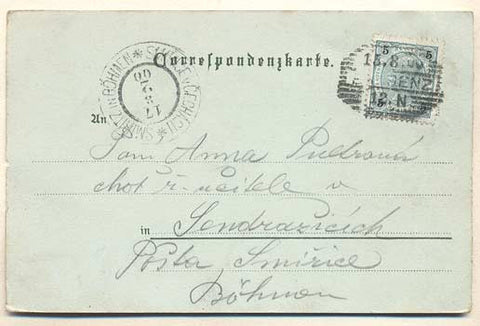 Correspondenzkarte.
5 5
13.8.00
12.N
SMIŘICE v ČECHÁCH * SMIŘITZ IN BÖHMEN *
17 8 00
An
Paní Anna
choť ř. učitele v
in Sendražicích
Pošta Smiřice
Böhmen